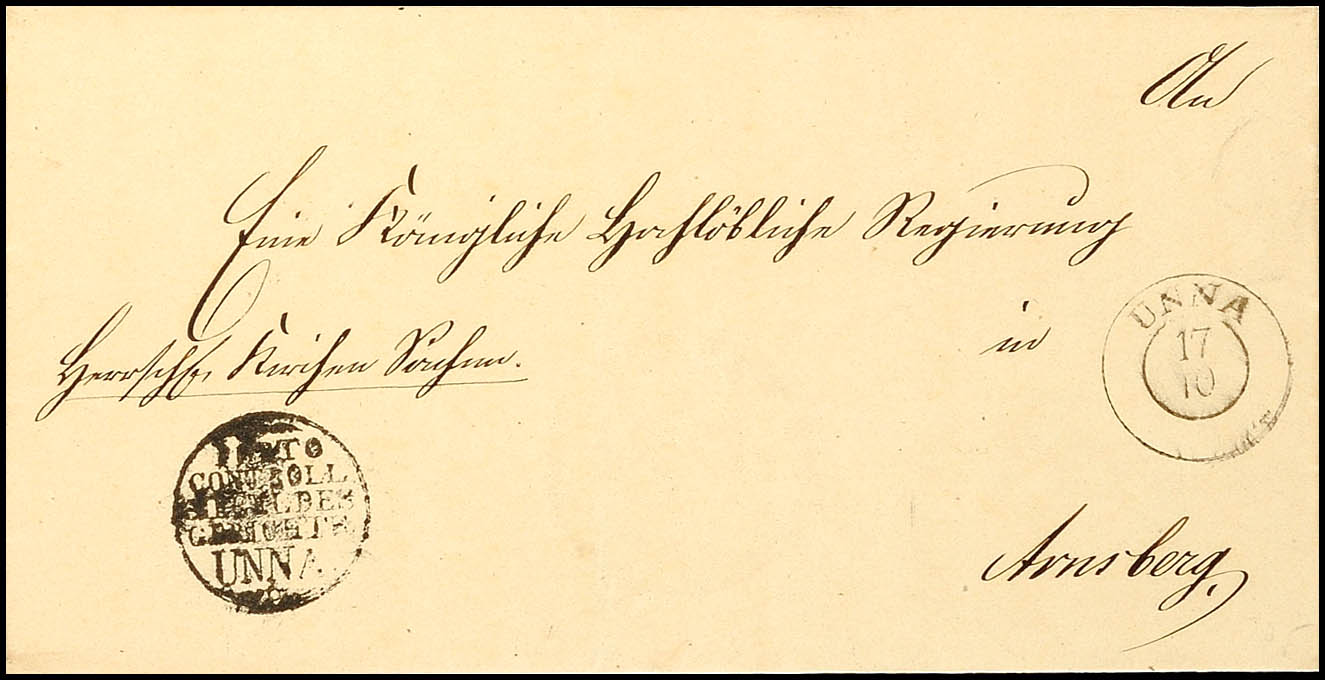 An
Eine Königliche Hochlöbliche Regierung
in
Herrschf. Kirchen Sachen.
UNNA
17
10
CONTROLL
UNNA
Arnsberg.